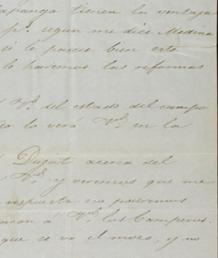 tienen la ventaja
segun me dice Medina
si le parece bien esto
le haremos las reformas
del estado del campo
lo verá Vd. en la
Duguit acerca del
y veremos que me
respuesta no podremos
a Vd. los Camperos.
que se va el mozo, y no